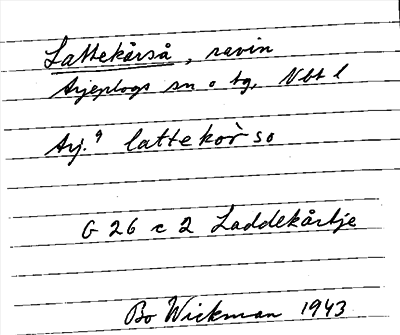 Lattekårså, ravin
Arjeplogs sn o tg, Nbt l
Arj.9 lattekòrso
G 26 c 2 Laddekårtje
Bo Wickman 1943